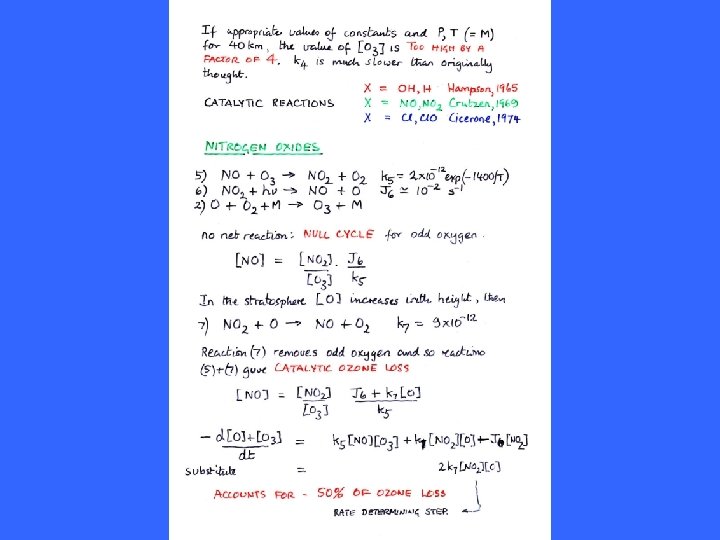 If appropriate values of constants and P, T (= M)
for 40 km, the value of [O₃] is TOO HIGH BY A
FACTOR OF 4. k₄ is much slower than originally
thought.
X = OH, H Hampson, 1965
CATALYTIC REACTIONS X = NO, NO₂ Crutzen, 1969
X = Cl, ClO Cicerone, 1974
NITROGEN OXIDES
5) NO + O₃ → NO₂ + O₂ k₅ = 2×10⁻¹² exp(-1400/T)
6) NO₂ + hν → NO + O J₆ ≃ 10⁻² s⁻¹
2) O + O₂ + M → O₃ + M
no net reaction: NULL CYCLE for odd oxygen.
[NO] = [NO₂]/[O₃] . J₆/k₅
In the stratosphere [O] increases with height, then
7) NO₂ + O → NO + O₂ k₇ = 9×10⁻¹²
Reaction (7) removes odd oxygen and so reactions
(5)+(7) give CATALYTIC OZONE LOSS
[NO] = [NO₂]/[O₃] J₆ + k₇[O]/k₅
- d[O]+[O₃]/dt = k₅[NO][O₃] + k₇[NO₂][O] - J₆[NO₂]
substitute = 2k₇[NO₂][O]
ACCOUNTS FOR ~ 50% OF OZONE LOSS
RATE DETERMINING STEP.